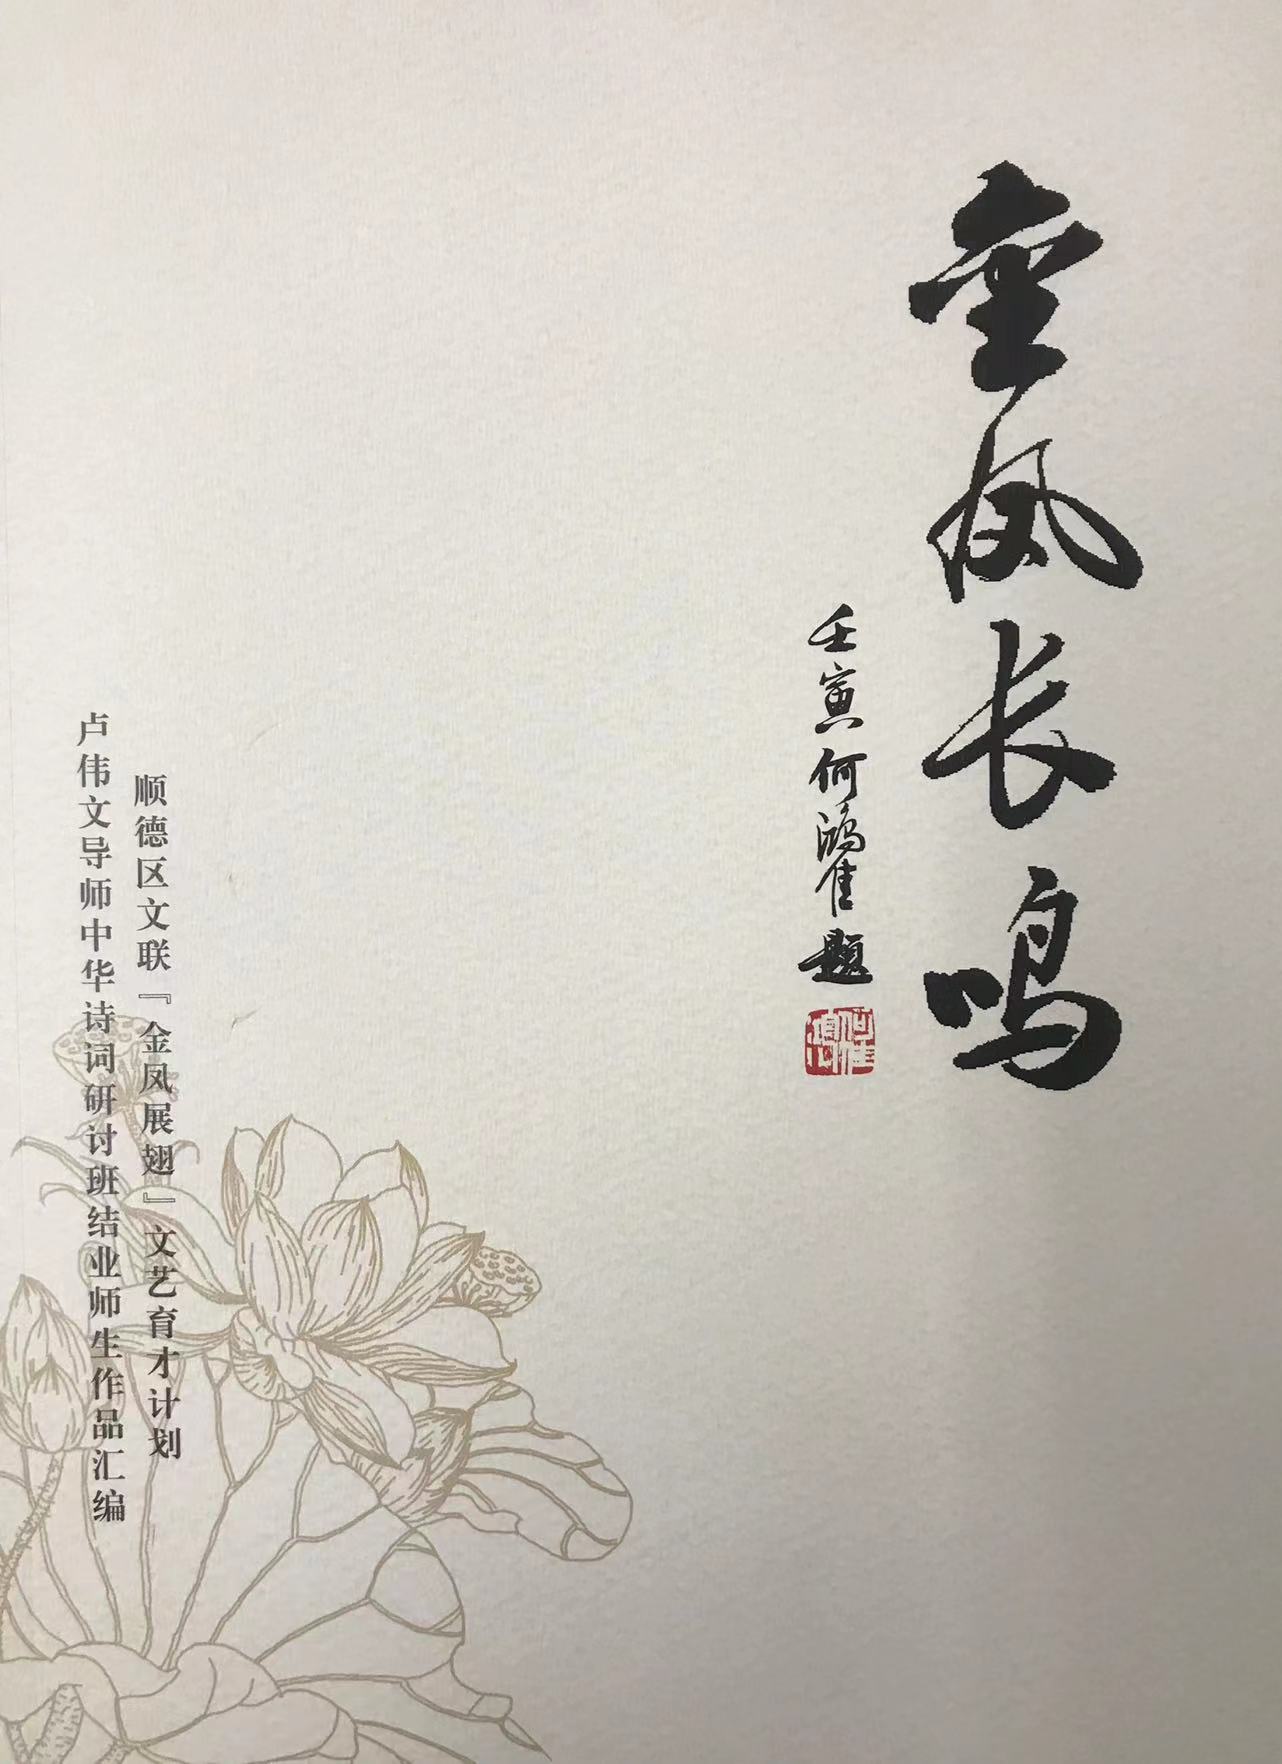 金凤长鸣
壬寅何鸿雀题
顺德区文联『金凤展翅』文艺育才计划
卢伟文导师中华诗词研讨班结业师生作品汇编